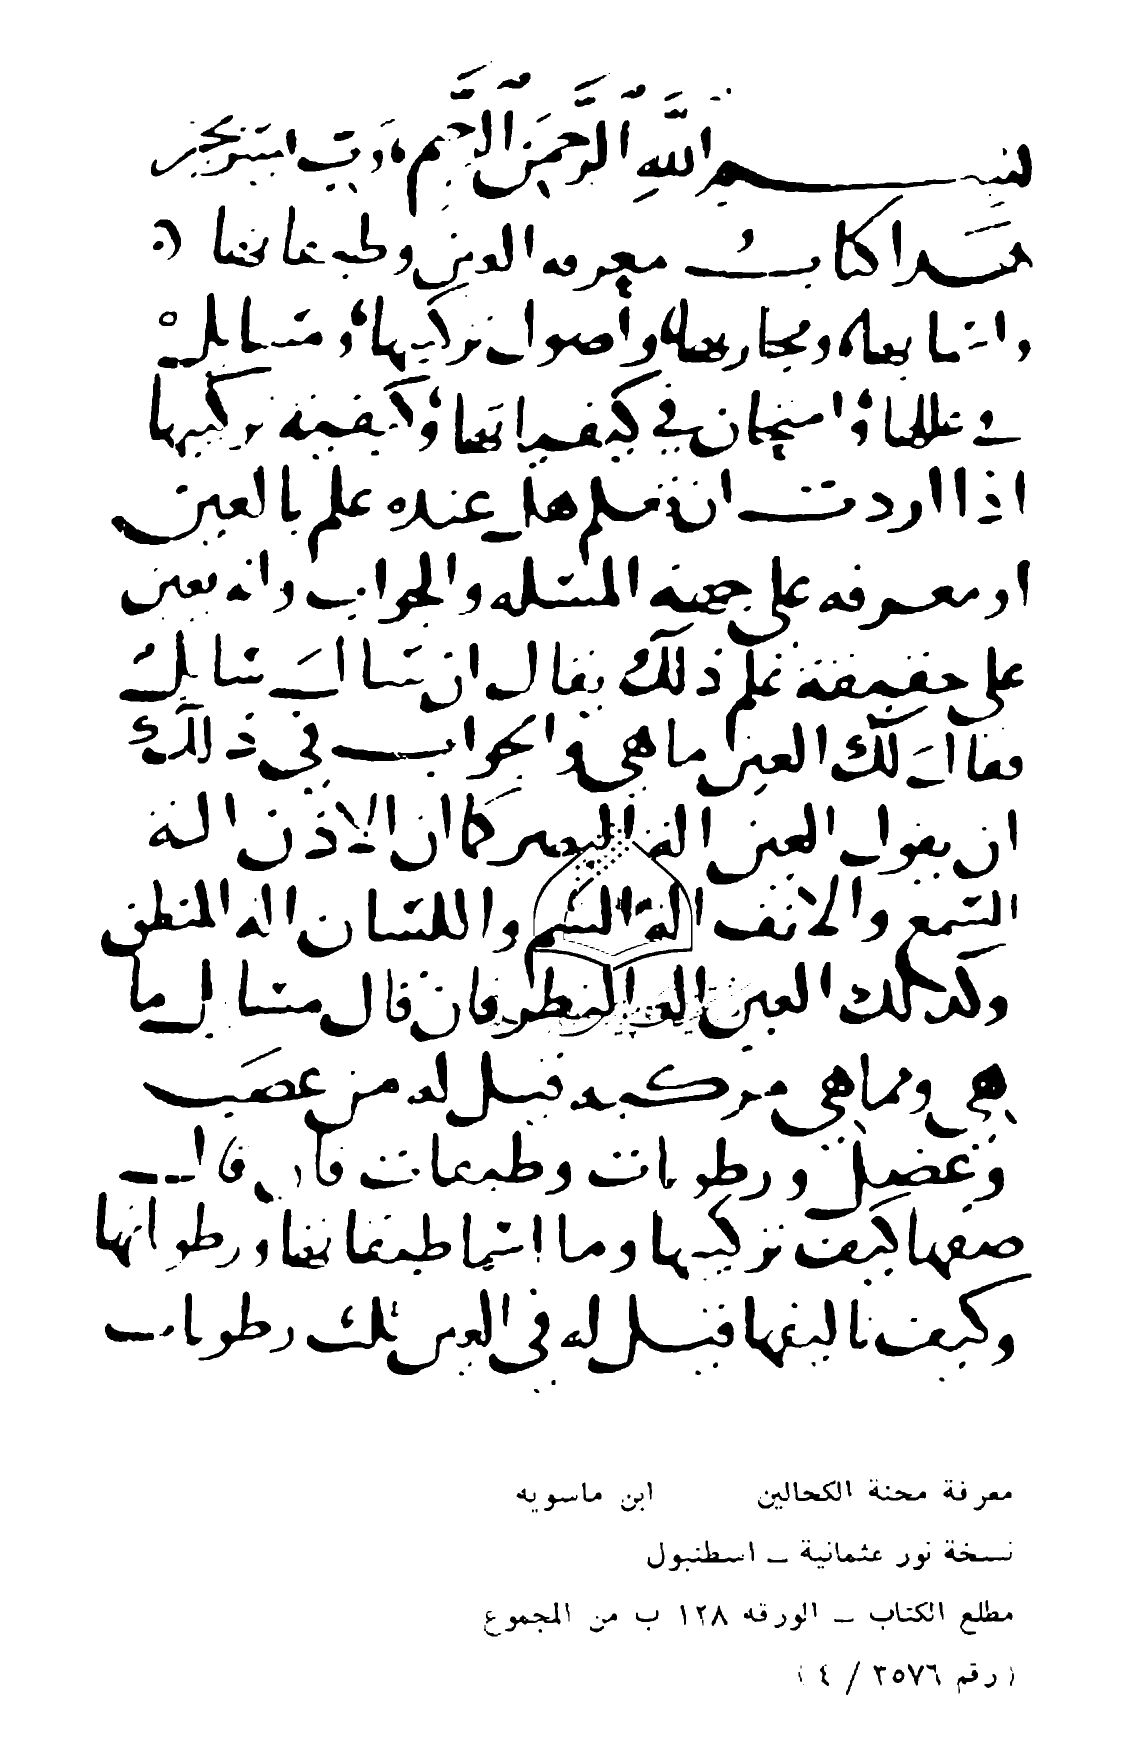 بسم الله الرحمن الرحيم رب
هذا كتاب معرفه العين وطبقاتها
واسمايها ومجاريها واصول تركيبها ومسايل
في عللها وامتحان في كيفياتها وكيفية تركيبها
اذا اردت ان تعلم هل عنده علم بالعين
او معرفه على جهة المسئله والجواب وانه يعين
على حقيقة علم ذلك يقال ان سال سايل
فقال لك العين ما هي والجواب في ذلك
ان يقول العين الة البصر كما ان الاذن الة
السمع والانف الة الشم واللسان الة المنطق
وكذلك العين الة النظر فان قال مسايل ما
هي ومما هي مركبه قيل له من عصب
وعضل ورطوبات وطبقات فان قال
صفها كيف تركيبها وما اسما طبقاتها ورطوباتها
وكيف تاليفها قيل له في العين ثلث رطوبات
معرفة محنة الكحالين ابن ماسويه
نسخة نور عثمانية ــ اسطنبول
مطلع الكتاب ــ الورقه ١٢٨ ب من المجموع
(رقم ٣٥٧٦ / ٤)